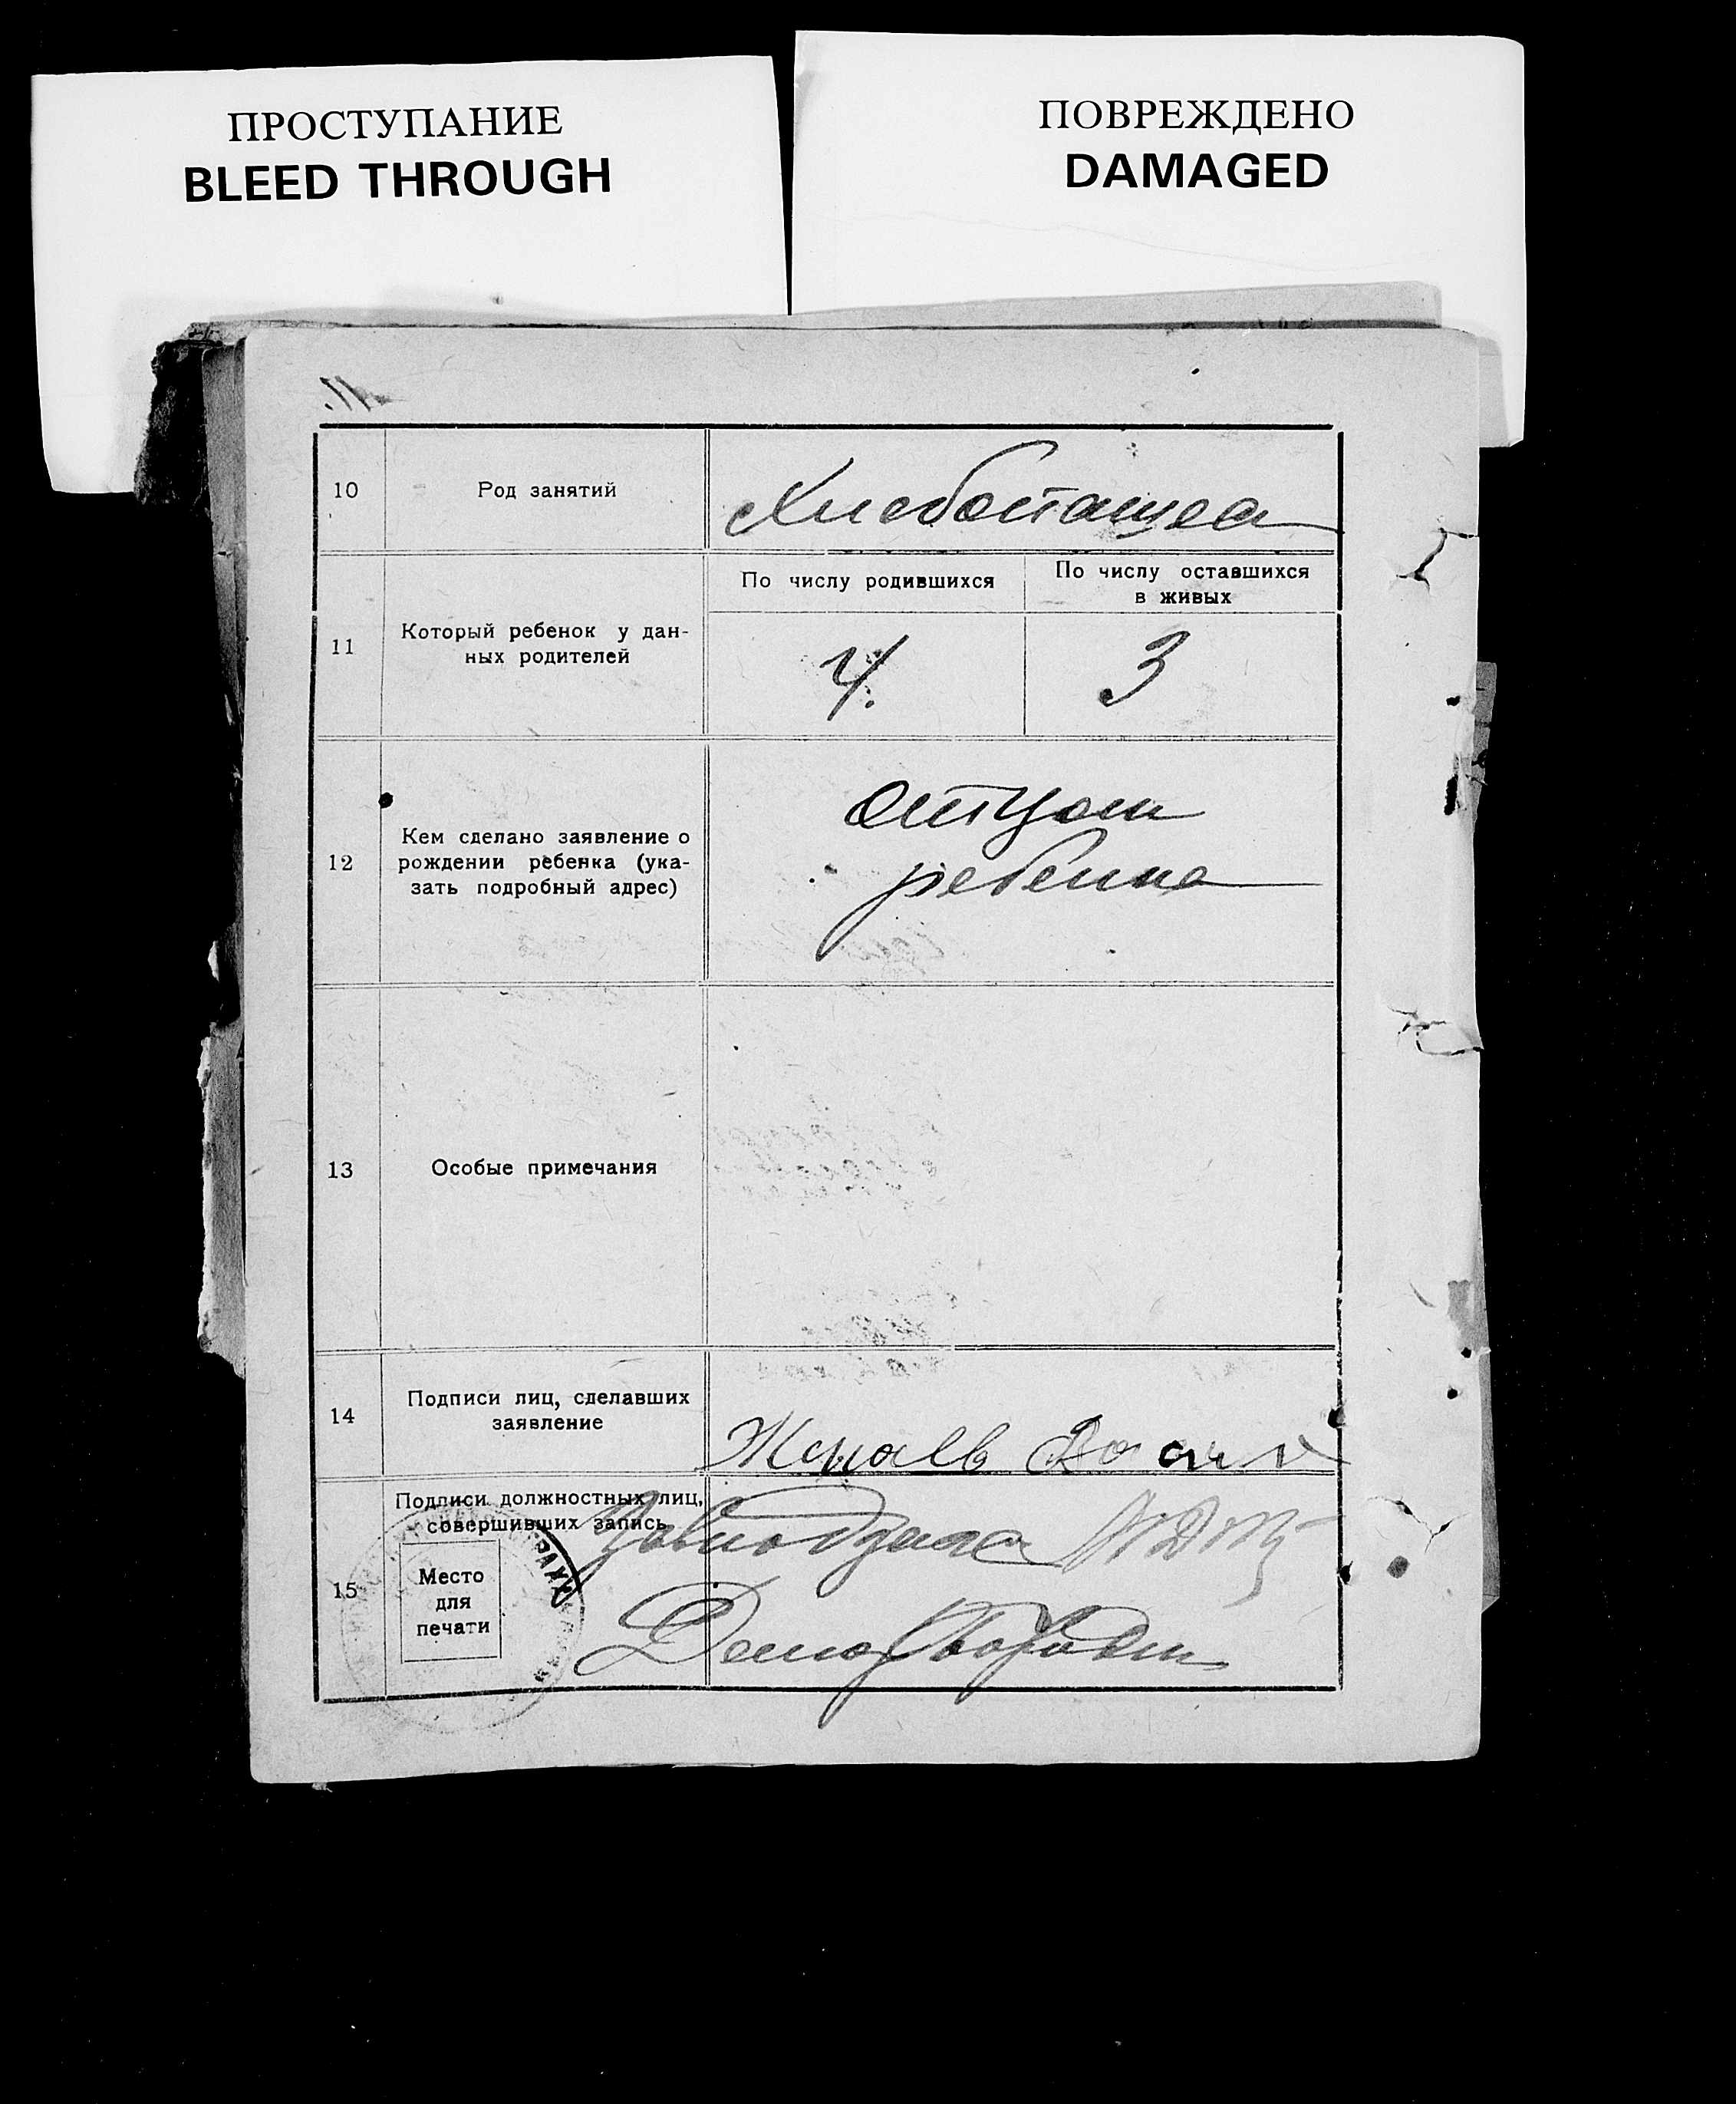 ПРОСТУПАНИЕ
BLEED THROUGH
ПОВРЕЖДЕНО
DAMAGED
11.
10
Род занятий
Хлебопашец
11
Который ребенок у дан-
ных родителей
По числу родившихся
По числу оставшихся
в живых
4.
3
12
Кем сделано заявление о
рождении ребенка (ука-
зать подробный адрес)
отцом
ребенка
13
Особые примечания
14
Подписи лиц, сделавших
заявление
15
Подписи должностных лиц,
совершивших запись
Место
для
печати